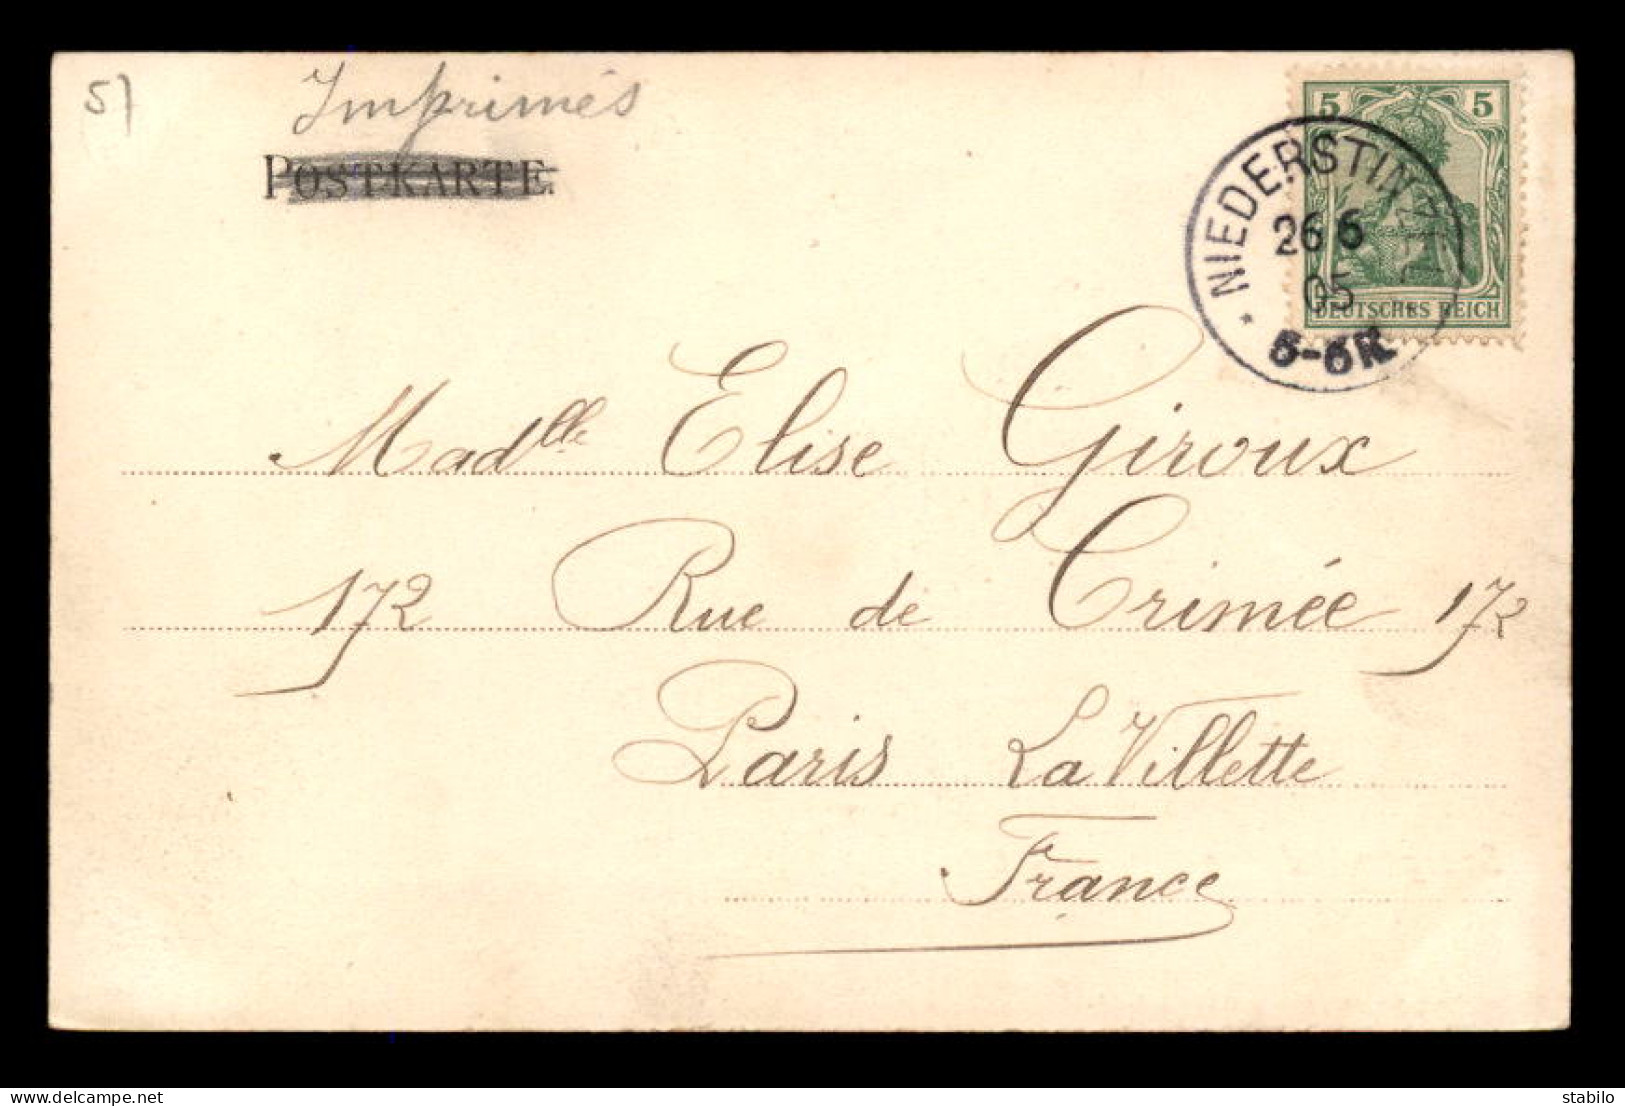 57
Imprimés
POSTKARTE.
5 5
NIEDERSTINZEL
26 6
05
5-6N
DEUTSCHES REICH
Madlle Elise Giroux
172 Rue de Crimée 172
Paris La Villette
France
delcampe.net
stabilo